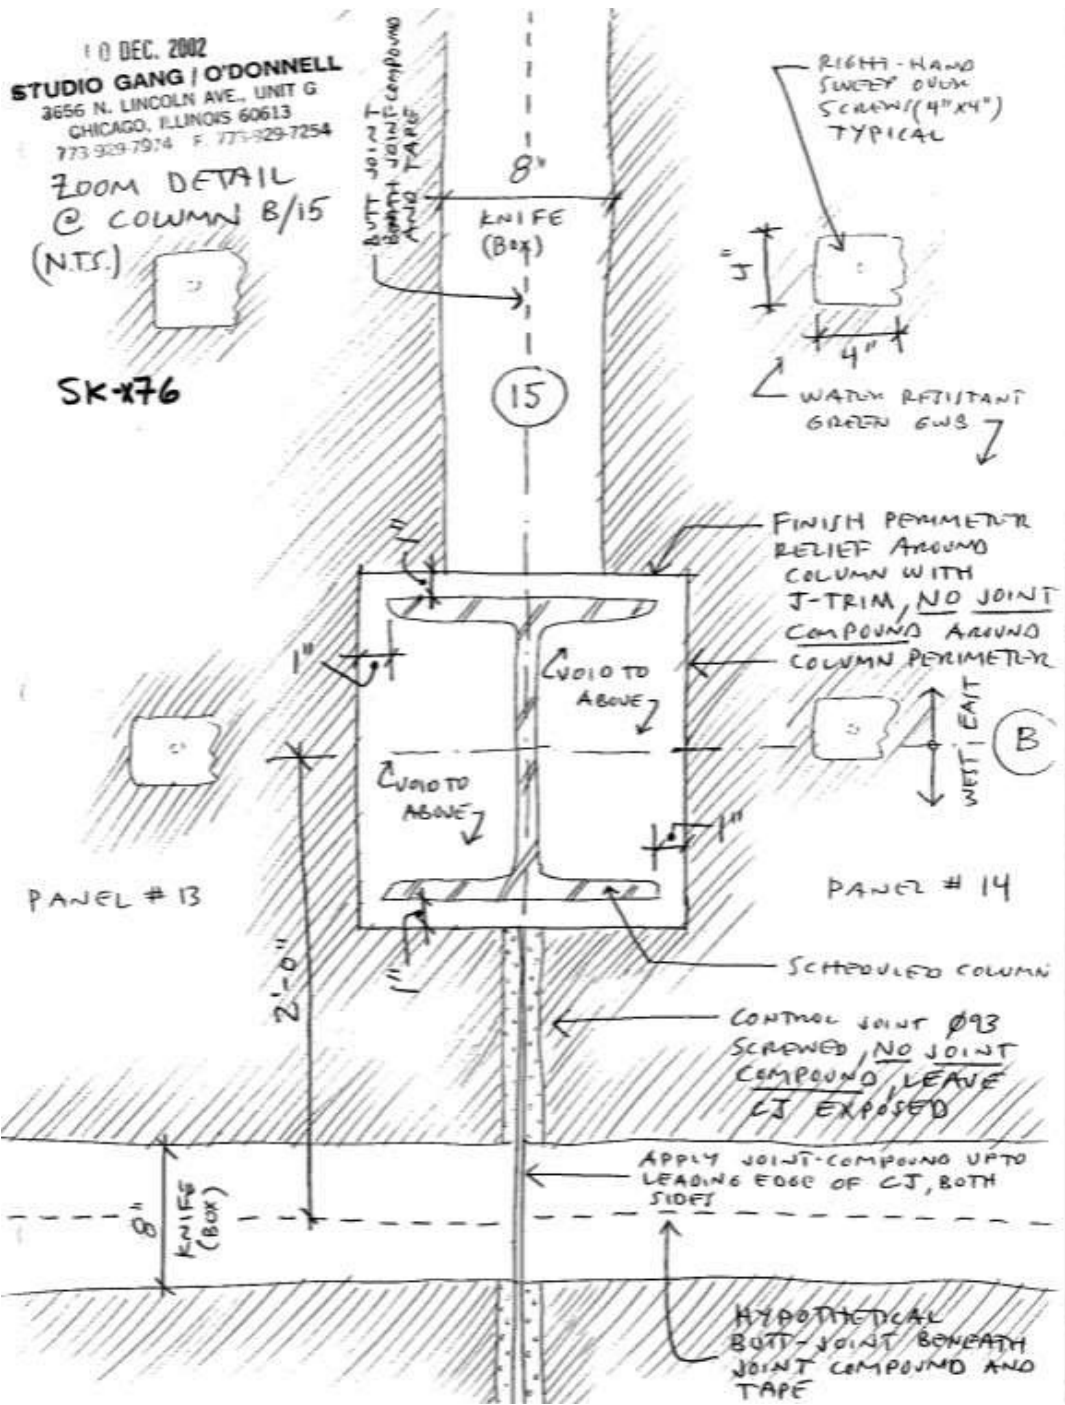 10 DEC. 2002
STUDIO GANG / O'DONNELL
3656 N. LINCOLN AVE., UNIT G
CHICAGO, ILLINOIS 60613
773-929-7974 F. 773-929-7254
ZOOM DETAIL
@ COLUMN B/15
(N.T.S.)
SK-x76
BUTT JOINT
BENEATH JOINT COMPOUND
AND TAPE
8"
KNIFE
(BOX)
15
RIGHT-HAND
SWEEP OVER
SCREWS (4"x4")
TYPICAL
4"
4"
WATER RESISTANT
GREEN GWB
FINISH PERIMETER
RELIEF AROUND
COLUMN WITH
J-TRIM, NO JOINT
COMPOUND AROUND
COLUMN PERIMETER
1"
1"
VOID TO
ABOVE
VOID TO
ABOVE
WEST EAST
B
1"
1"
PANEL # 13
PANEL # 14
2'-0"
SCHEDULED COLUMN
CONTROL JOINT Ø93
SCREWED, NO JOINT
COMPOUND, LEAVE
CJ EXPOSED
APPLY JOINT-COMPOUND UP TO
LEADING EDGE OF CJ, BOTH
SIDES
8"
KNIFE
(BOX)
HYPOTHETICAL
BUTT-JOINT BENEATH
JOINT COMPOUND AND
TAPE